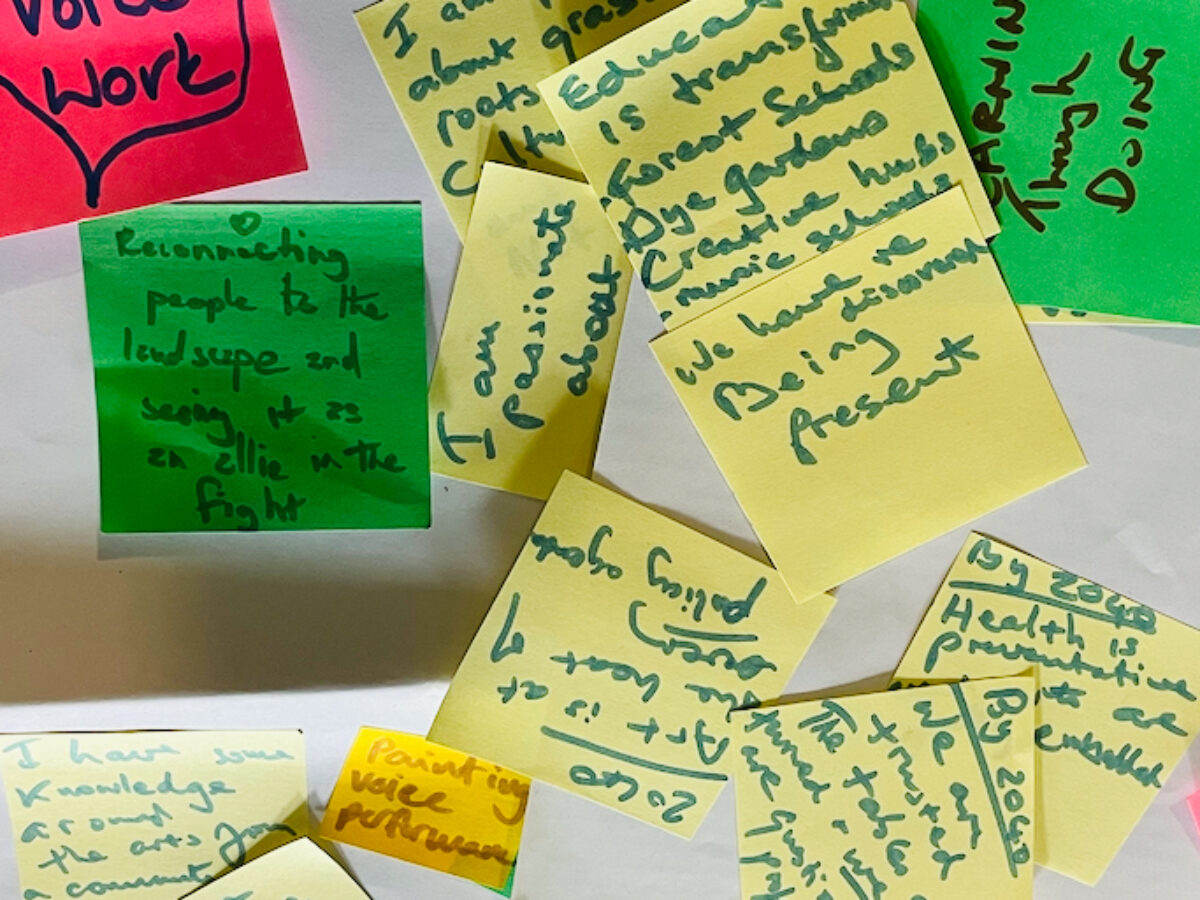 Voice
Work
I am
about
roots
grass
Education
is transform
Forest Schools
Dye gardens
Creative hubs
music schools
LEARNING
Through
DOING
Reconnecting
people to the
landscape and
seeing it as
an allie in the
fight
I am
passionate
about
We have re
discovered
Being
present
2040
Art is at
the heart
every
policy
By 2040
Health is
preventative
are
embedded
By 2040
We are
trusted
The tables
turned
we
I have some
Knowledge
around
the arts from
a community
Painting
voice
performance